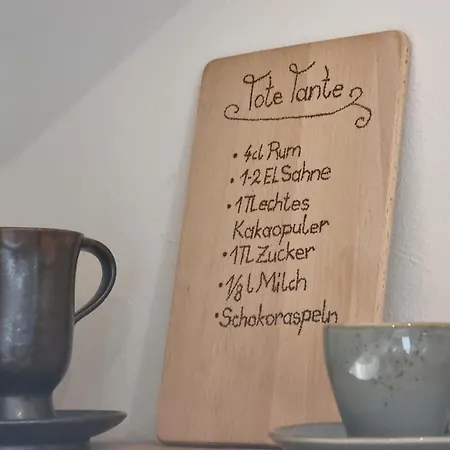 Tote Tante
• 4cl Rum
• 1-2 EL Sahne
• 1TL echtes
Kakaopuler
• 1TL Zucker
• 1/8 l Milch
• Schokoraspeln